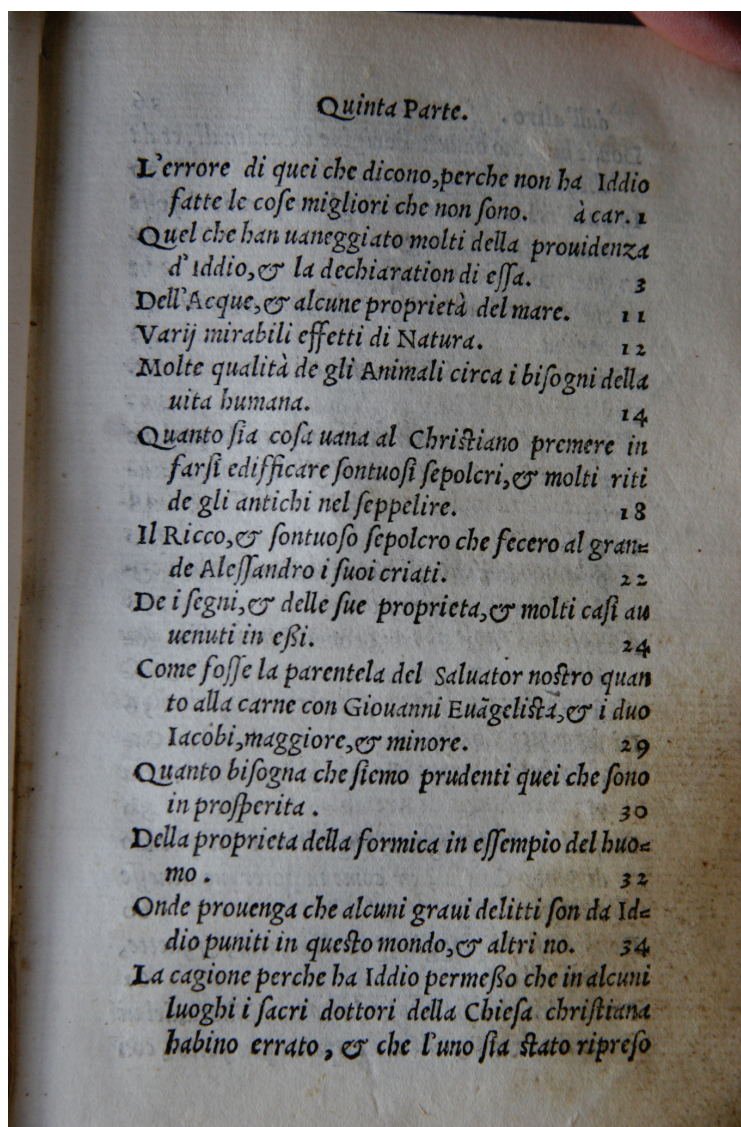 Quinta Parte.
L'errore di quei che dicono, perche non ha Iddio
fatte le coſe migliori che non ſono. à car. 1
Quel che han uaneggiato molti della prouidenza
d'Iddio, & la dechiaration di eſſa. 3
Dell'Acque, & alcune proprietà del mare. 11
Varij mirabili effetti di Natura. 12
Molte qualità de gli Animali circa i biſogni della
uita humana. 14
Quanto ſia coſa uana al Chriſtiano premere in
farſi edifficare ſontuoſi ſepolcri, & molti riti
de gli antichi nel ſeppelire. 18
Il Ricco, & ſontuoſo ſepolcro che fecero al gran=
de Aleſſandro i ſuoi criati. 22
De i ſegni, & delle ſue proprieta, & molti caſi au
uenuti in eßi. 24
Come foſſe la parentela del Saluator noſtro quan
to alla carne con Giouanni Euãgeliſta, & i duo
Iacobi, maggiore, & minore. 29
Quanto biſogna che ſiemo prudenti quei che ſono
in proſperita . 30
Della proprieta della formica in eſſempio del huo=
mo . 32
Onde prouenga che alcuni graui delitti ſon da Id=
dio puniti in queſto mondo, & altri no. 34
La cagione perche ha Iddio permeßo che in alcuni
luoghi i ſacri dottori della Chieſa chriſtiana
habino errato , & che l'uno ſia ſtato ripreſo